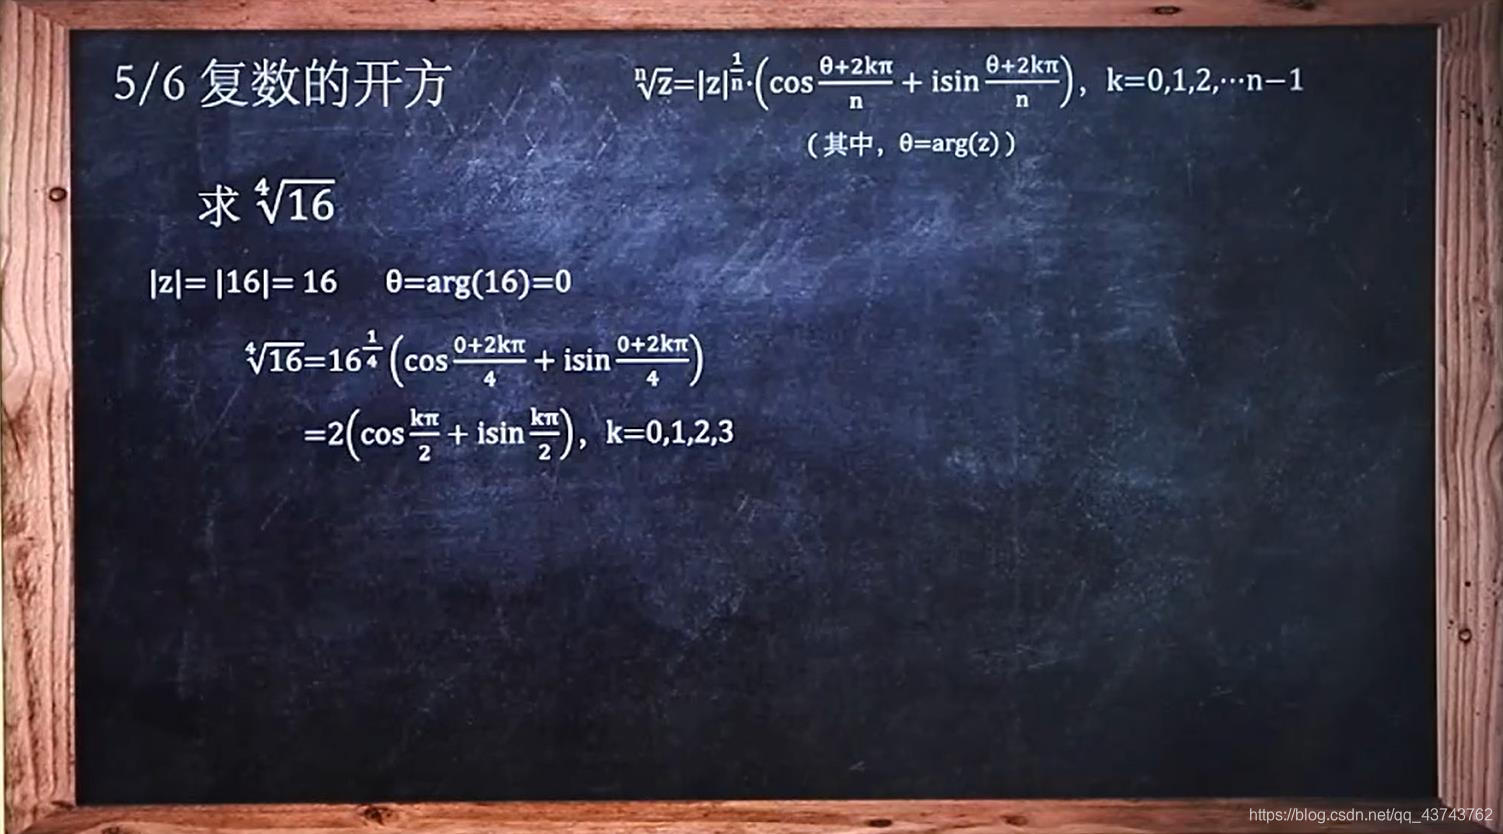 5/6 复数的开方
ⁿ√z=|z|^(1/n)·(cos (θ+2kπ)/n + isin (θ+2kπ)/n), k=0,1,2,···n−1
(其中，θ=arg(z))
求 ⁴√16
|z|= |16|= 16 θ=arg(16)=0
⁴√16=16^(1/4) (cos (0+2kπ)/4 + isin (0+2kπ)/4)
=2(cos kπ/2 + isin kπ/2), k=0,1,2,3
https://blog.csdn.net/qq_43743762